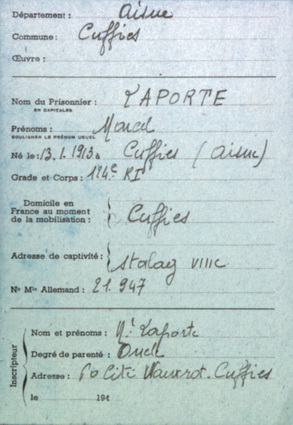 Département : Aisne
Commune : Cuffies
Œuvre :
Nom du Prisonnier : LAPORTE
EN CAPITALES
Prénoms : Marcel
SOULIGNER LE PRÉNOM USUEL
Né le : 13.1.1913 à Cuffies (Aisne)
Grade et Corps : 124e RI
Domicile en
France au moment
de la mobilisation : Cuffies
Adresse de captivité : Stalag VIIIC
No Mle Allemand : 21.947
Inscripteur
Nom et prénoms : Mr Laporte
Degré de parenté : Oncle
Adresse : Cité Vauxrot. Cuffies
le 194